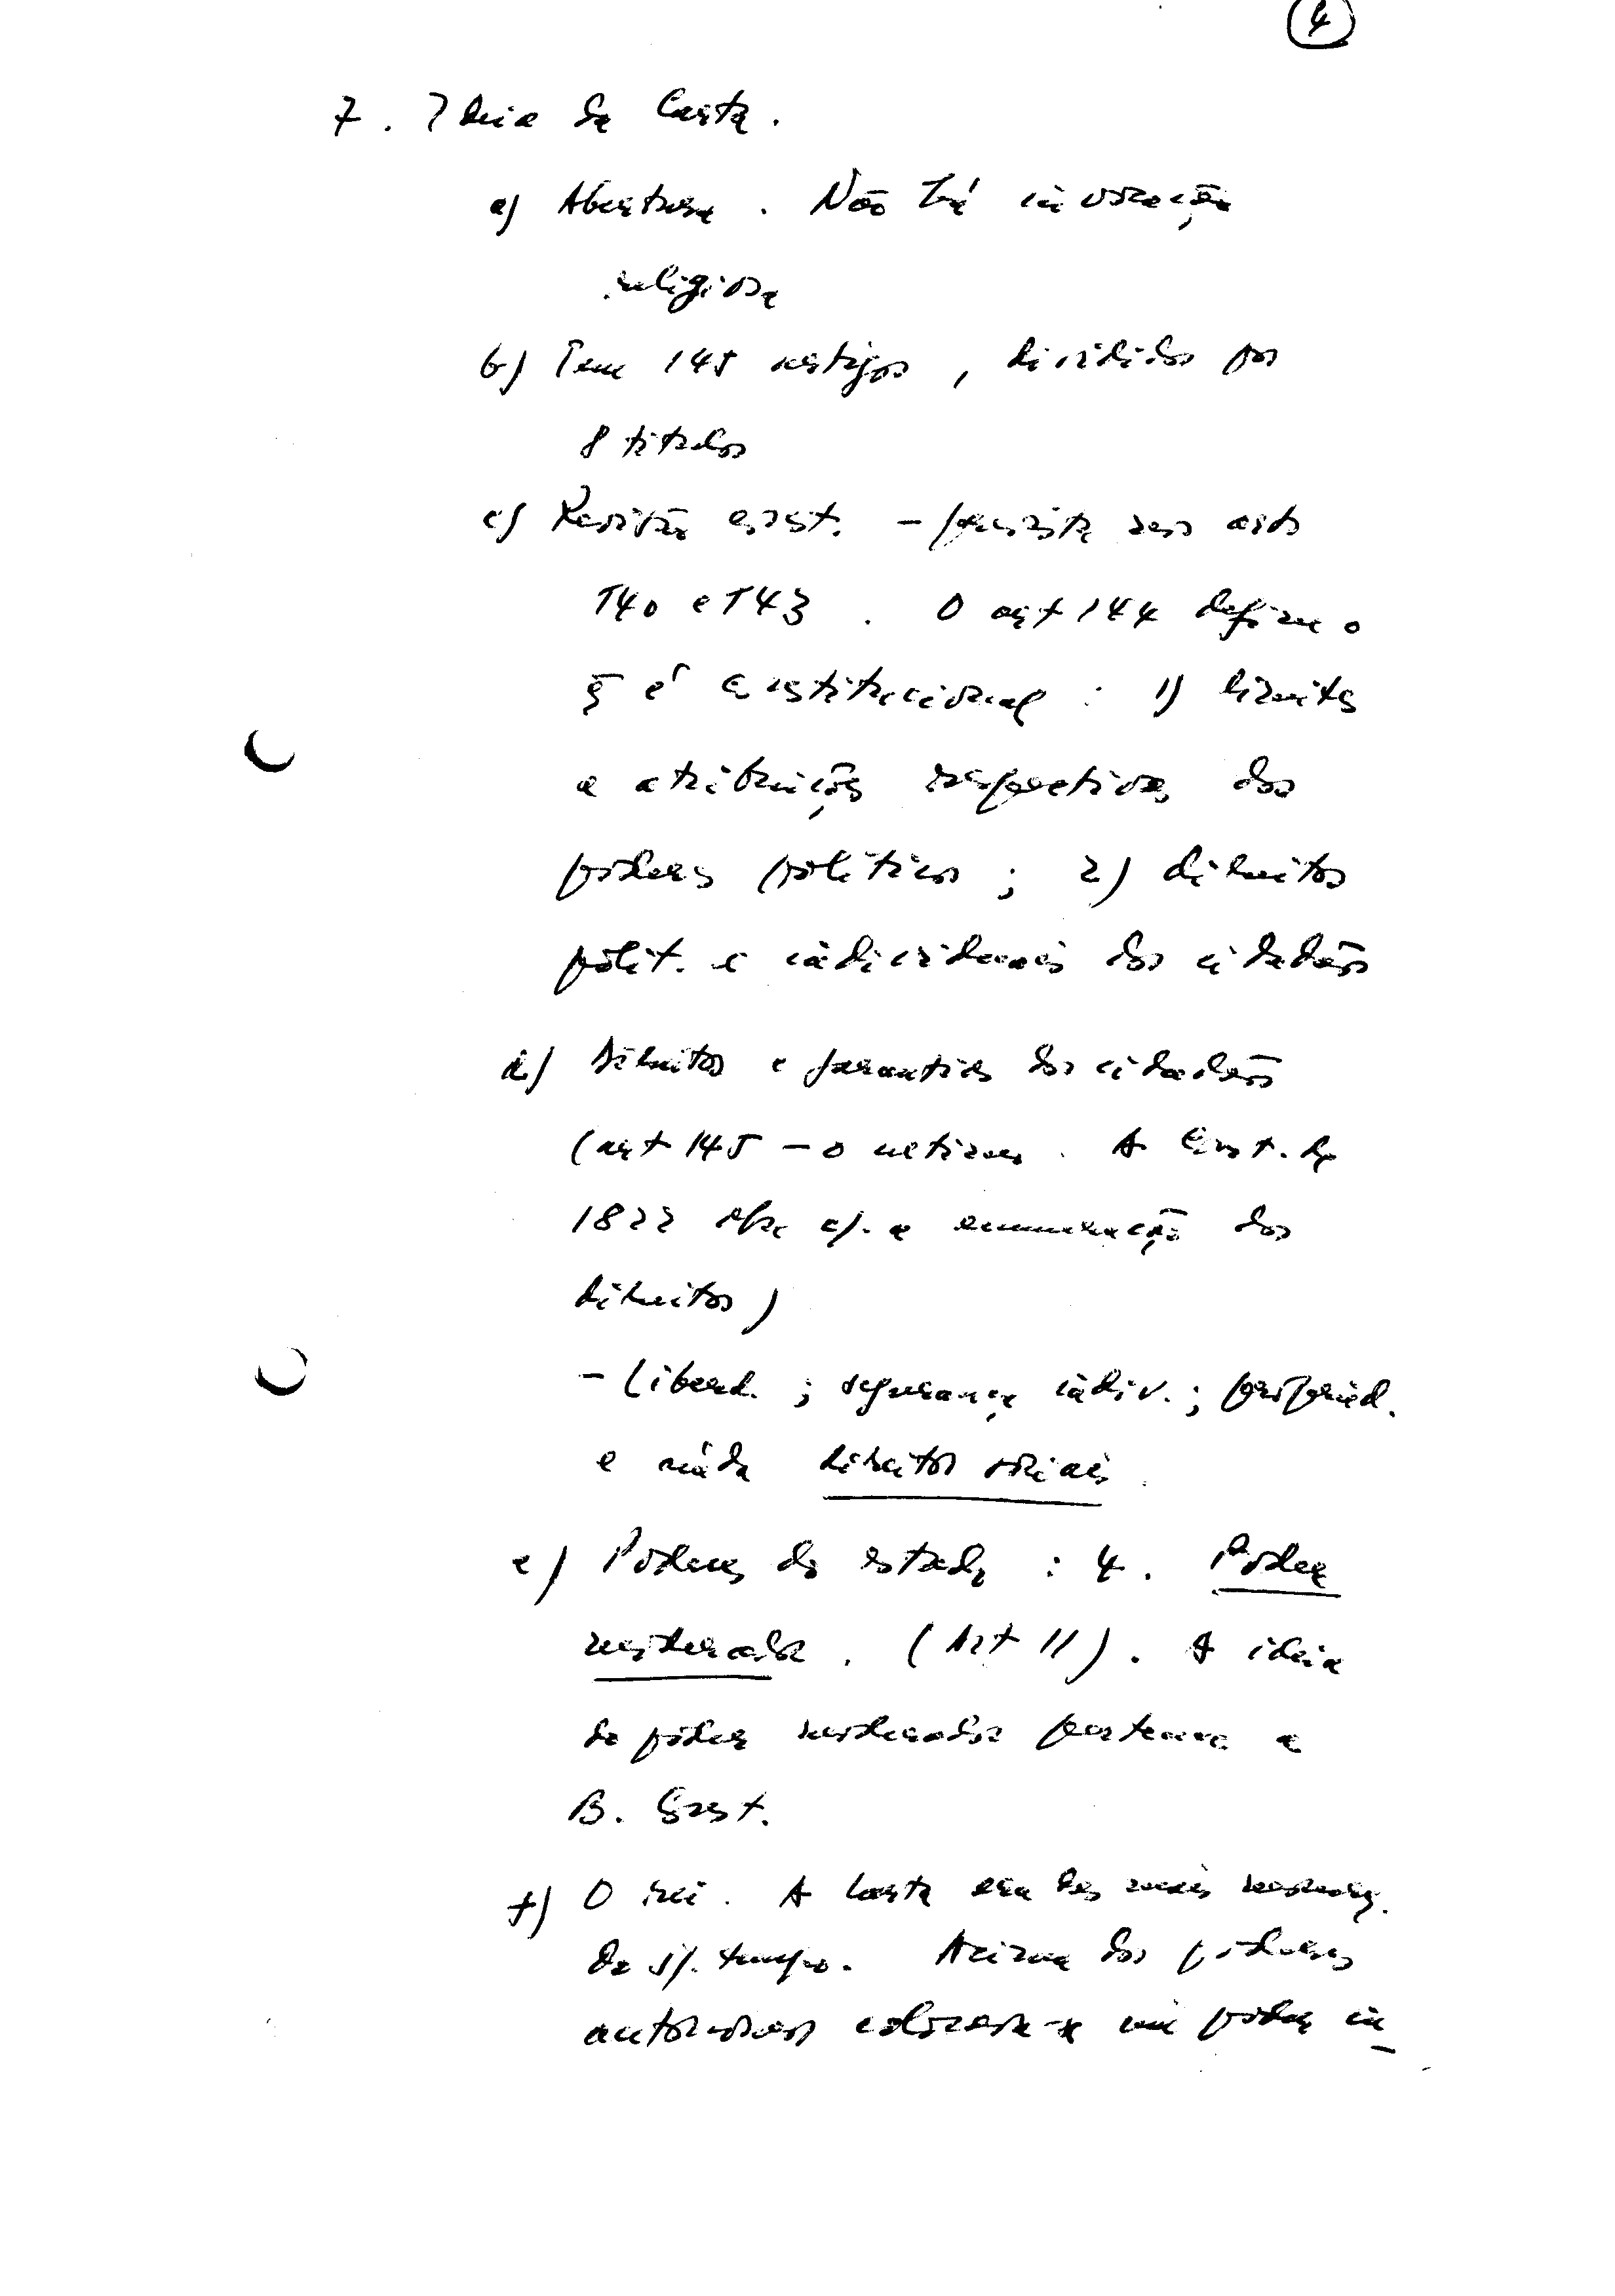 4
7. Ideia da Carta.
a) Abertura. Não há invocação
religiosa
b) Tem 145 artigos, divididos por
8 titulos
c) Revisão const. - prevista nos arts
140 e 143. O art 144 define o
q̄ é constitucional: 1) limites
e atribuições respectivas dos
poderes politicos; 2) direitos
polit. e individuais dos cidadãos
d) Direitos e garantias dos cidadãos
(art 145 - o ultimo. A Const. de
1822 abre c/. a enumeração dos
direitos)
- liberd.; segurança indiv.; propried.
e ainda direitos sociais.
e) Poderes do estado: 4. Poder
moderador. (Art 11). A ideia
do poder moderador pertence a
B. Const.
f) O rei. A Carta era das mais
do s/. tempo. Acima dos poderes
autonomos colocava-se um poder in-